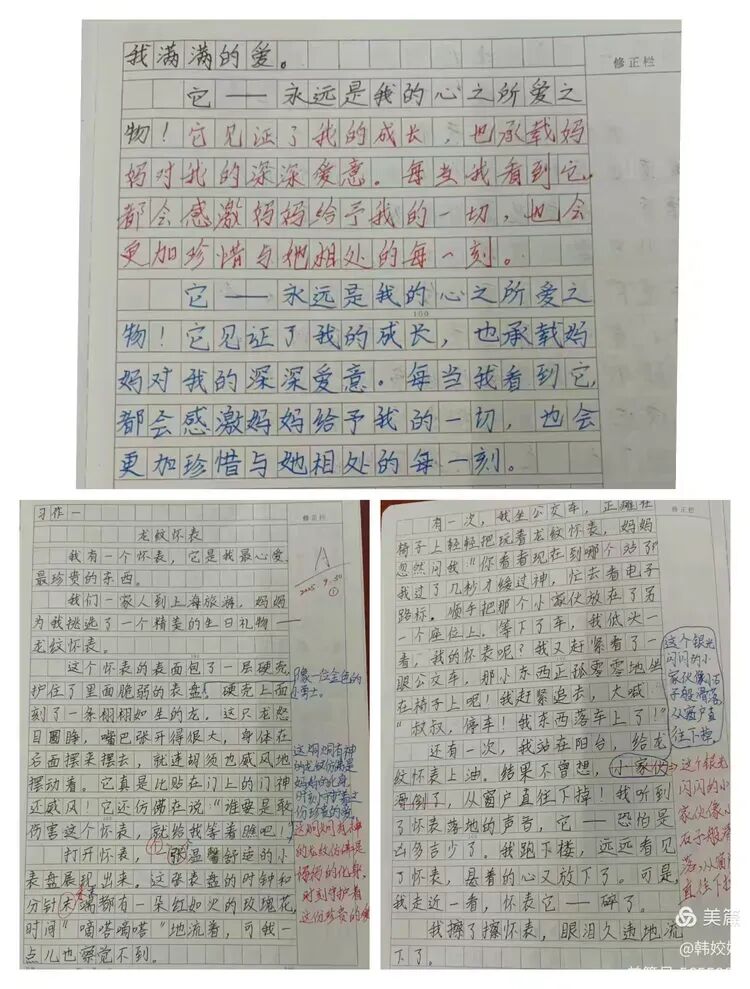 我满满的爱。
修正栏
它——永远是我的心之所爱之
物！它见证了我的成长，也承载妈
妈对我的深深爱意。每当我看到它，
都会感激妈妈给予我的一切，也会
更加珍惜与她相处的每一刻。
它——永远是我的心之所爱之
100
物！它见证了我的成长，也承载妈
妈对我的深深爱意。每当我看到它，
都会感激妈妈给予我的一切，也会
更加珍惜与她相处的每一刻。
习作一
修正栏
龙纹怀表
我有一个怀表，它是我最心爱、
最珍贵的东西。
A
2025.9.30
①
我们一家人到上海旅游，妈妈
为我挑选了一个精美的生日礼物——
龙纹怀表。
这个怀表的表面包了一层硬壳，
护住了里面脆弱的表盘，
像一位金色的
勇士。
硬壳上面
刻了一条栩栩如生的龙，这只龙怒
目圆睁，嘴巴张开得很大，身体在
后面摆来摆去，就连胡须也威风地
摆动着。它真是比贴在门上的门神
还威风！它还仿佛在说：“谁要是敢
伤害这个怀表，就给我等着瞧吧！”
这炯炯有神
的龙纹仿佛是
妈妈的化身，
时刻守护着这
份珍贵的爱。
这炯炯有神
的龙纹仿佛是
妈妈的化身，
时刻守护着
这份珍贵的爱
打开怀表，一张温馨舒适的小
表盘展现出来。这张表盘的时钟和
分针末端都有一朵红如火的玫瑰花，
时间“嘀嗒嘀嗒”地流着，可我一
点儿也察觉不到。
有一次，我坐公交车，正躺在
修正栏
椅子上轻轻把玩着龙纹怀表，妈妈
忽然问我“你看看现在到哪个站了？”
我过了几秒才缓过神，忙去看电子
路标。顺手把那个小家伙放在了另
一个座位上。等下了车，我低头一
看，我的怀表呢？我又赶紧看了一
眼公交车，那小东西正孤零零地坐
在椅子上呢！我赶紧追去，大喊：
“叔叔，停车！我东西落车上了！”
还有一次，我站在阳台，给龙
纹怀表上油。结果不曾想，小家伙
滑倒了，从窗户直往下掉！我听到
了怀表落地的声音，它——恐怕是
凶多吉少了。我跑下楼，远远看见
了怀表，悬着的心又放下了。可是，
我走近一看，怀表它——碎了。
我擦了擦怀表，眼泪久违地流
下了。
这个银光
闪闪的小
家伙像小石
子般滑落，
从窗户直
往下掉。
这个银光
闪闪的小
家伙像小
石子般滑
落，从窗户
直往下掉
美篇